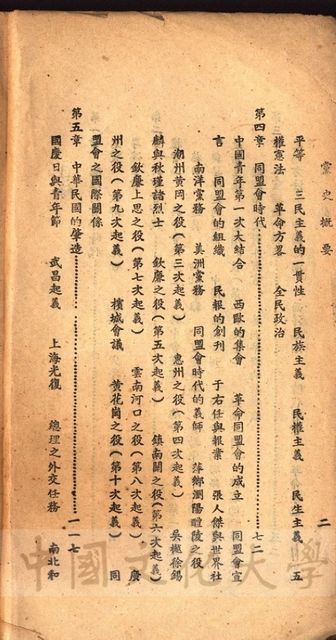 黨史概要　　二
平等　三民主義的一貫性　民族主義　民權主義　民生主義　五
權憲法　革命方略　全民政治
第四章　同盟會時代…………七二
中國青年第一次大結合　西歐的集會　革命同盟會的成立　同盟會宣
言　同盟會的組織　民報的創刊　于右任與報業　張人傑與世界社
南洋黨務　美洲黨務　同盟會時代的義師　萍鄉瀏陽醴陵之役
潮州黃岡之役(第三次起義)　惠州之役(第四次起義)　吳樾徐錫
麟與秋瑾諸烈士　欽廉之役(第五次起義)　鎮南關之役(第六次起義)
欽廉上思之役(第七次起義)　雲南河口之役(第八次起義)　廣
州之役(第九次起義)　檳城會議　黃花崗之役(第十次起義)　同
盟會之國際關係
第五章　中華民國的肇造…………一一七
國慶日與青年節　武昌起義　上海光復　總理之外交任務　南北和
中國文化大學